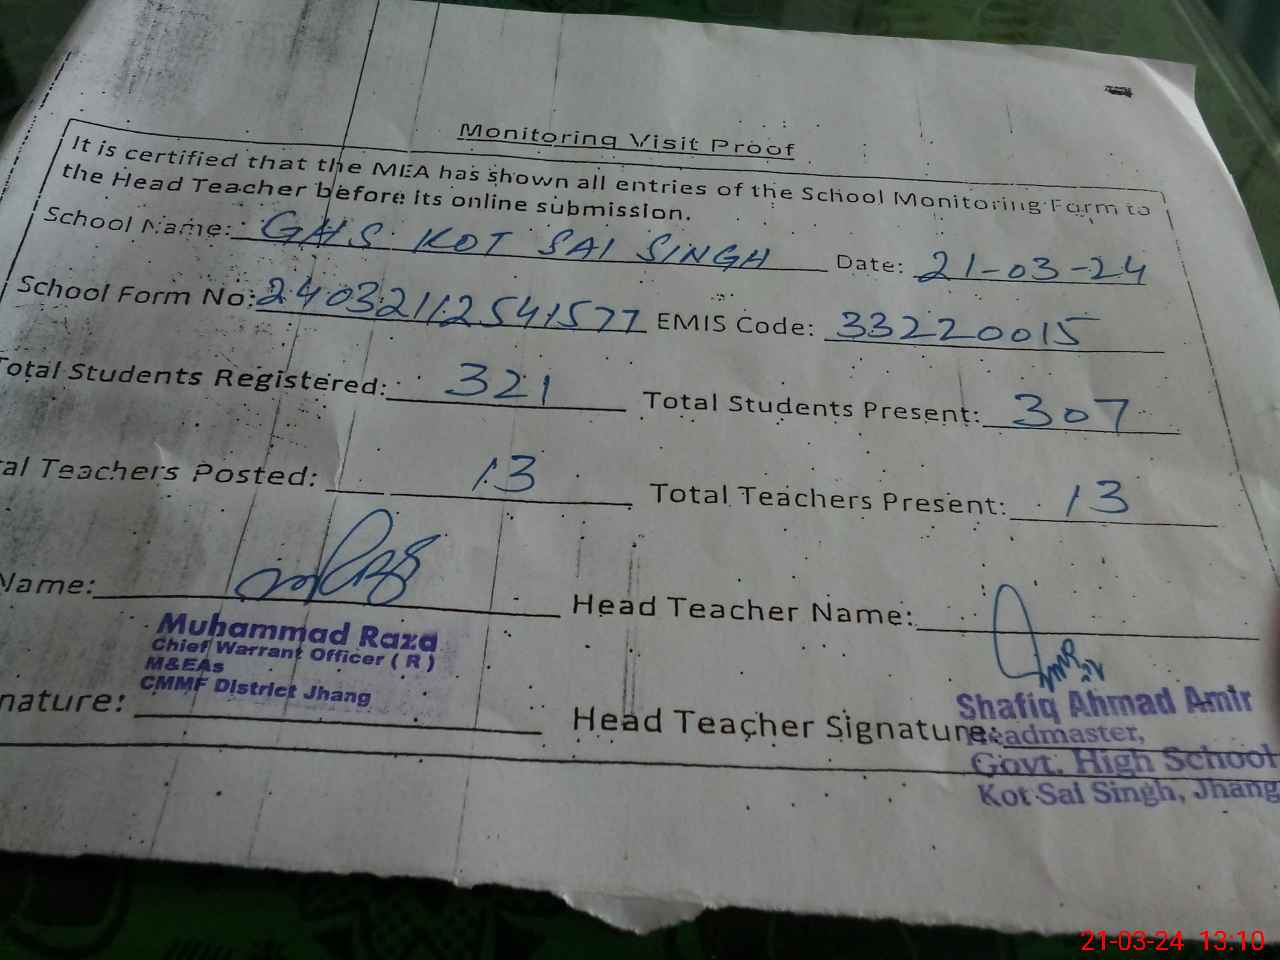 Monitoring Visit Proof
It is certified that the MEA has shown all entries of the School Monitoring Form to
the Head Teacher before its online submission.
School Name: GHS KOT SAI SINGH Date: 21-03-24
School Form No: 240321112541577 EMIS Code: 33220015
otal Students Registered: 321 Total Students Present: 307
al Teachers Posted: 13 Total Teachers Present: 13
Name: Head Teacher Name:
Muhammad Raza
Chief Warrant Officer ( R )
M&EAs
CMMF District Jhang
nature: Head Teacher Signature:
Shafiq Ahmad Amir
Headmaster,
Govt. High School
Kot Sai Singh, Jhang
21-03-24 13:10